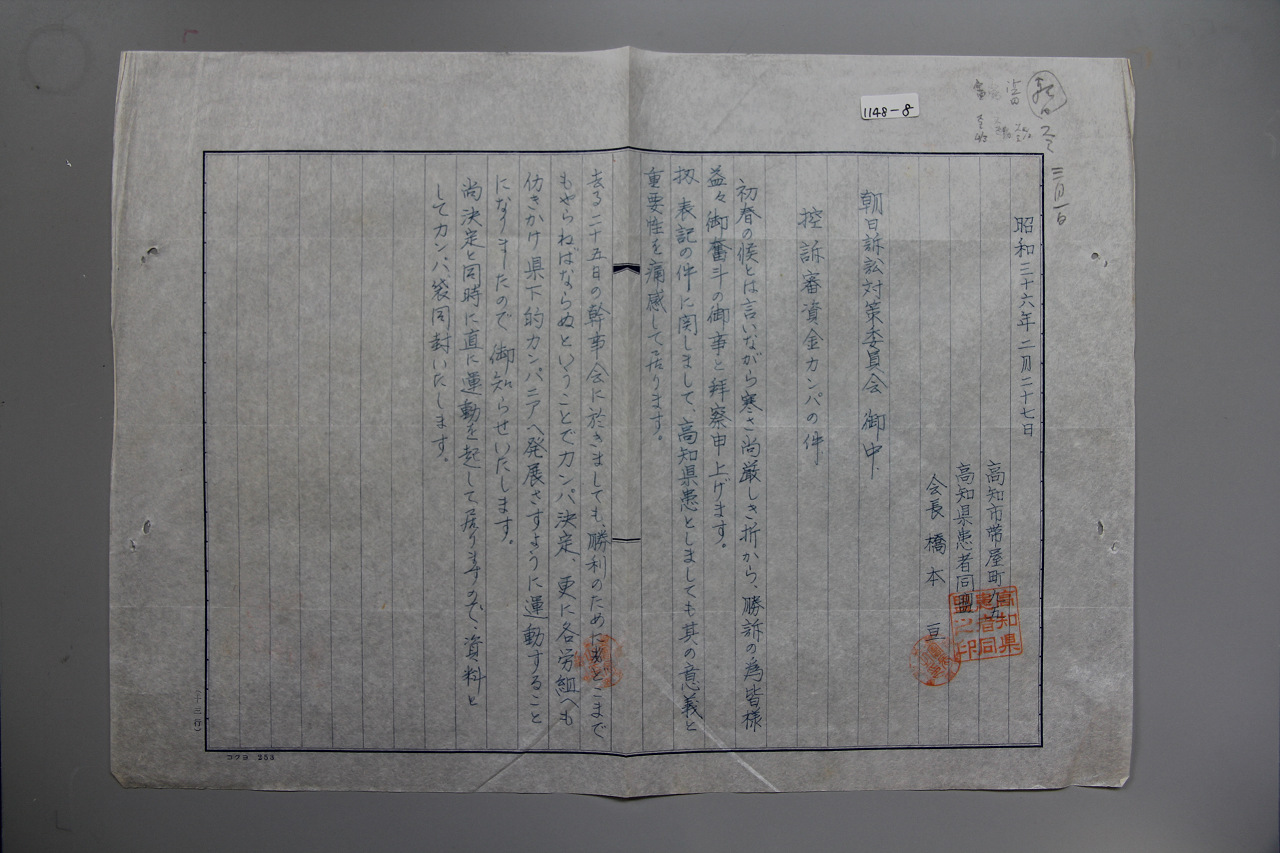 1148-8
三月一日
昭和三十六年二月二十七日
高知市帯屋町
高知県患者同盟
会長 橋本 亘
高知県患者同盟之印
朝日訴訟対策委員会 御中、
控訴審資金カンパの件
初春の候とは言いながら寒さ尚厳しき折から、勝訴の為皆様
益々御奮斗の御事と拝察申上げます。
扨、表記の件に関しまして、高知県患としましても其の意義と
重要性を痛感して居ります。
去る二十五日の幹事会に於きましても、勝利のためにはどこまで
もやらねばならぬということでカンパ決定、更に各労組へも
仂きかけ県下的カンパニアへ発展さすように運動すること
になりましたので御知らせいたします。
尚決定と同時に直に運動を起して居りますので、資料と
してカンパ袋同封いたします。
十三行)
コクヨ 253